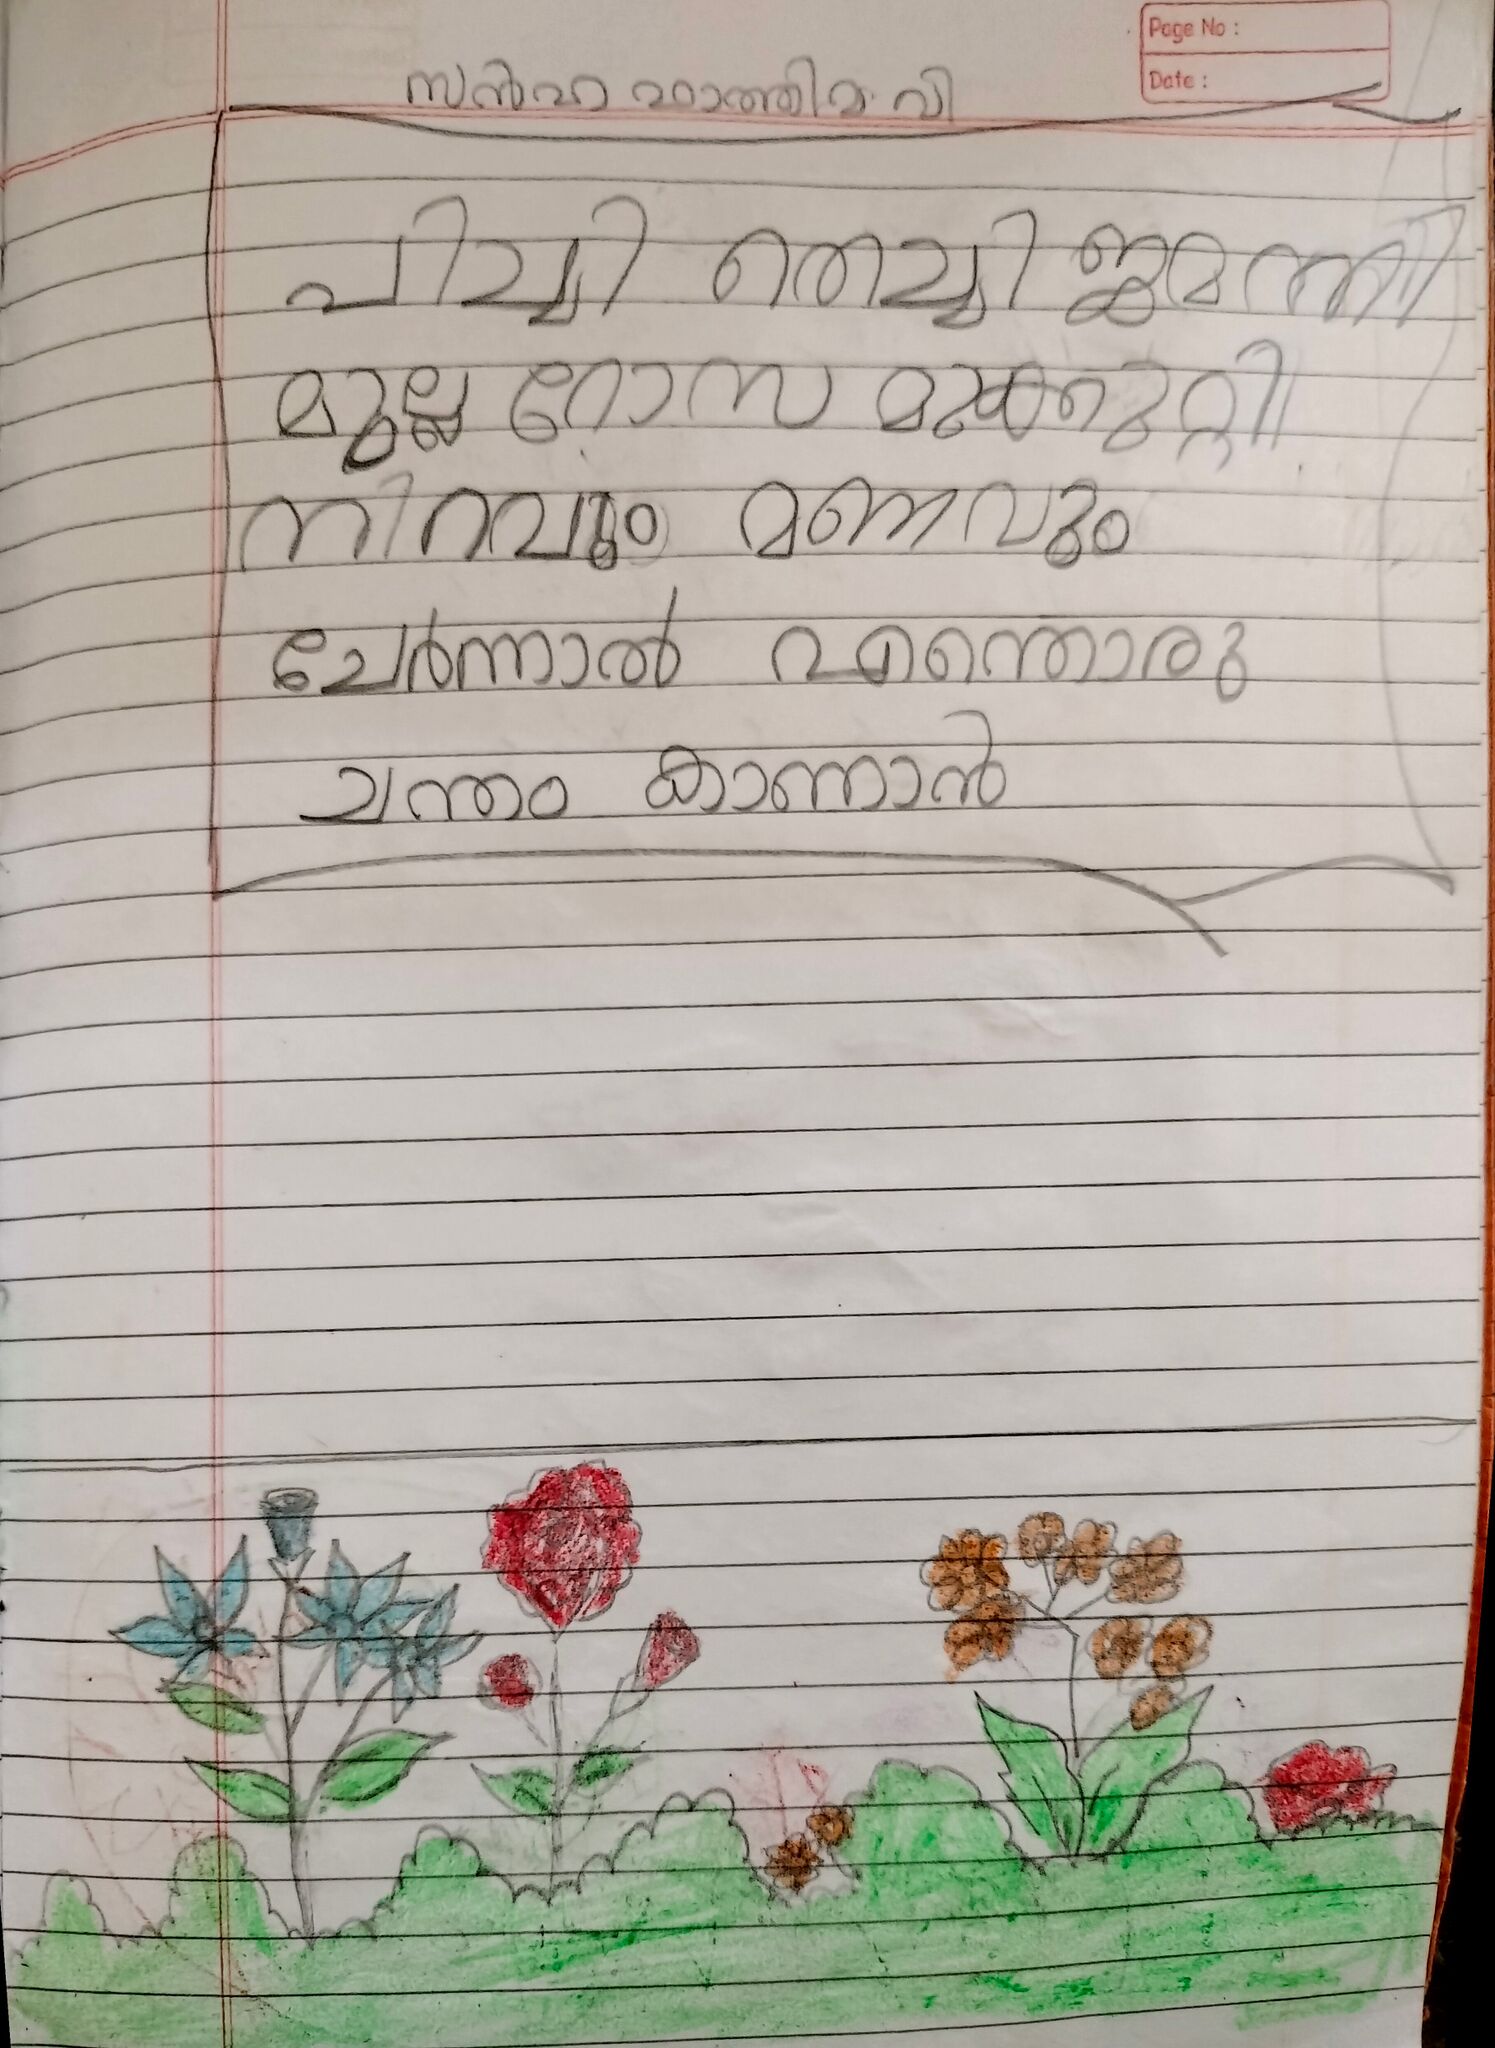 Page No :
Date :
സൻഹ ഫാത്തിമ വി
പിച്ചി തെച്ചി ജമന്തി
മുല്ല റോസ മുക്കുറ്റി
നിറവും മണവും
ചേർന്നാൽ എന്തൊരു
ചന്തം കാണാൻ